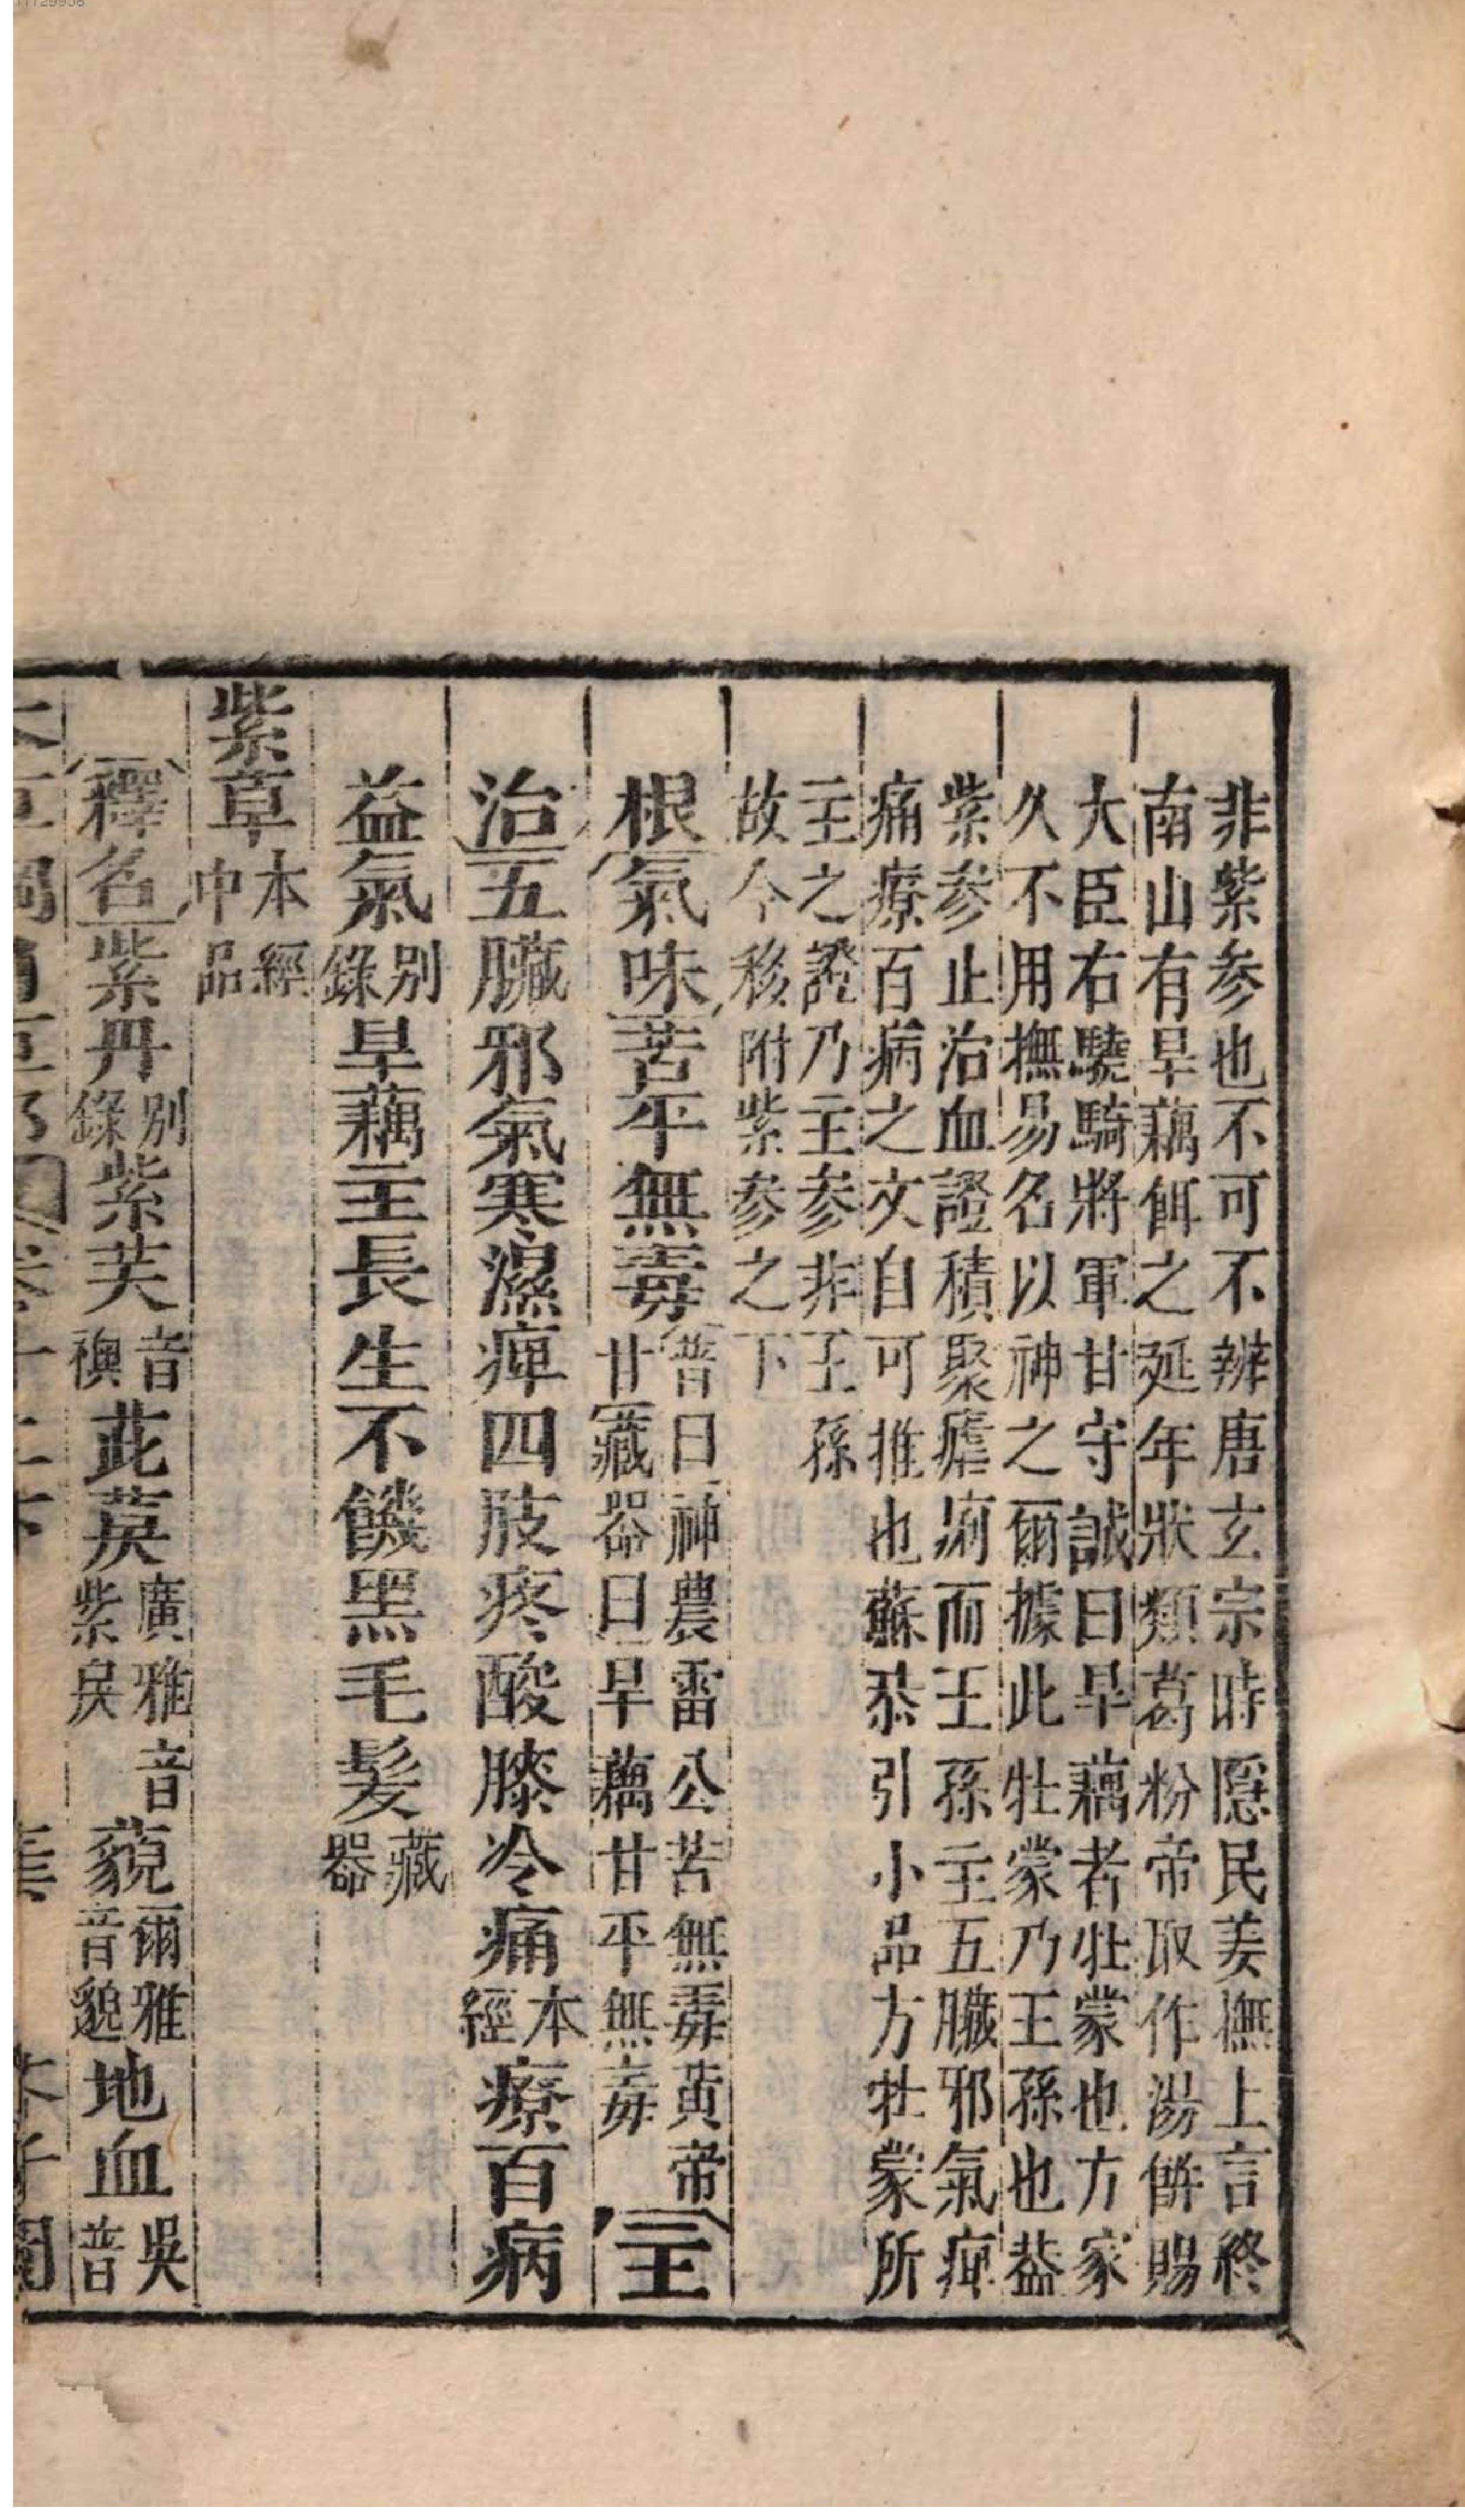 非紫參也不可不辨唐玄宗時隱民姜撫上言終
南山有旱藕餌之延年狀類葛粉帝取作湯餅賜
大臣右驍騎將軍甘守誠曰旱藕者牡蒙也方家
久不用撫易名以神之爾據此牡蒙乃王孫也蓋
紫參止治血證積聚瘧痢而王孫主五臟邪氣痺
痛療百病之文自可推也蘇恭引小品方牡蒙所
主之證乃主參非王孫
故今移附紫參之下
根氣味苦平無毒普曰神農雷公苦無毒黃帝
甘藏器曰旱藕甘平無毒主
治五臟邪氣寒濕痺四肢疼酸膝冷痛本經療百病
益氣別錄旱藕主長生不饑黑毛髮藏器
紫草本經中品
釋名紫丹別錄紫芺音襖茈䓞廣雅音紫戾藐爾雅音邈地血吳普